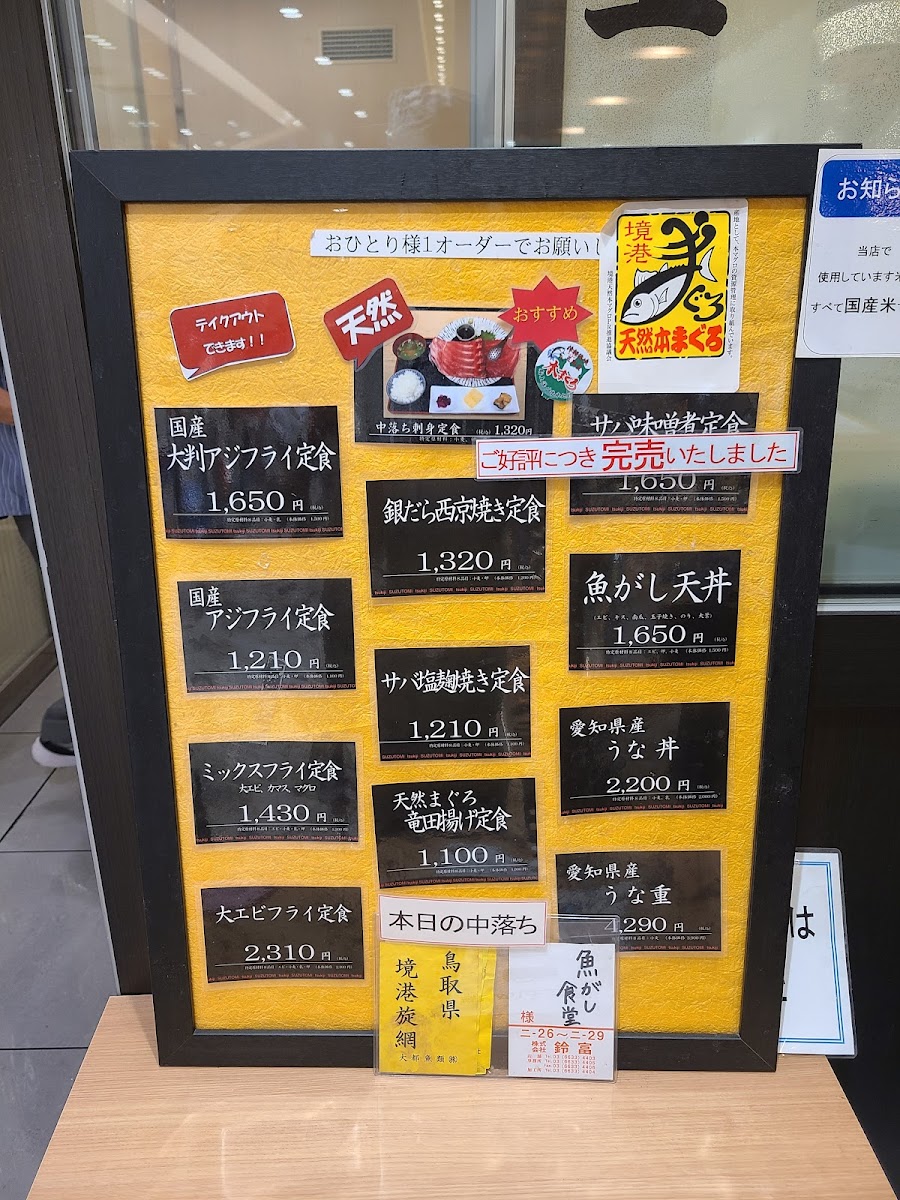 おひとり様1オーダーでお願いし
テイクアウト
できます!!
天然
おすすめ
中落ち刺身定食 (税込) 1,320円
境港
まぐろ
天然本まぐろ
お知ら
当店で
使用しています米
すべて国産米
国産
大判アジフライ定食
1,650円(税込)
サバ味噌煮定食
ご好評につき完売いたしました
1,650円(税込)
銀だら西京焼き定食
1,320円(税込)
国産
アジフライ定食
1,210円(税込)
魚がし天丼
(エビ、キス、南瓜、玉子焼き、のり、大葉)
1,650円(税込)
サバ塩麹焼き定食
1,210円(税込)
愛知県産
うな丼
2,200円(税込)
ミックスフライ定食
大エビ、カマス、マグロ
1,430円(税込)
天然まぐろ
竜田揚げ定食
1,100円(税込)
愛知県産
うな重
4,290円(税込)
大エビフライ定食
2,310円(税込)
本日の中落ち
鳥取県
境港旋網
大都魚類㈱
魚がし
食堂
様
二-26〜二-29
株式会社 鈴富
は